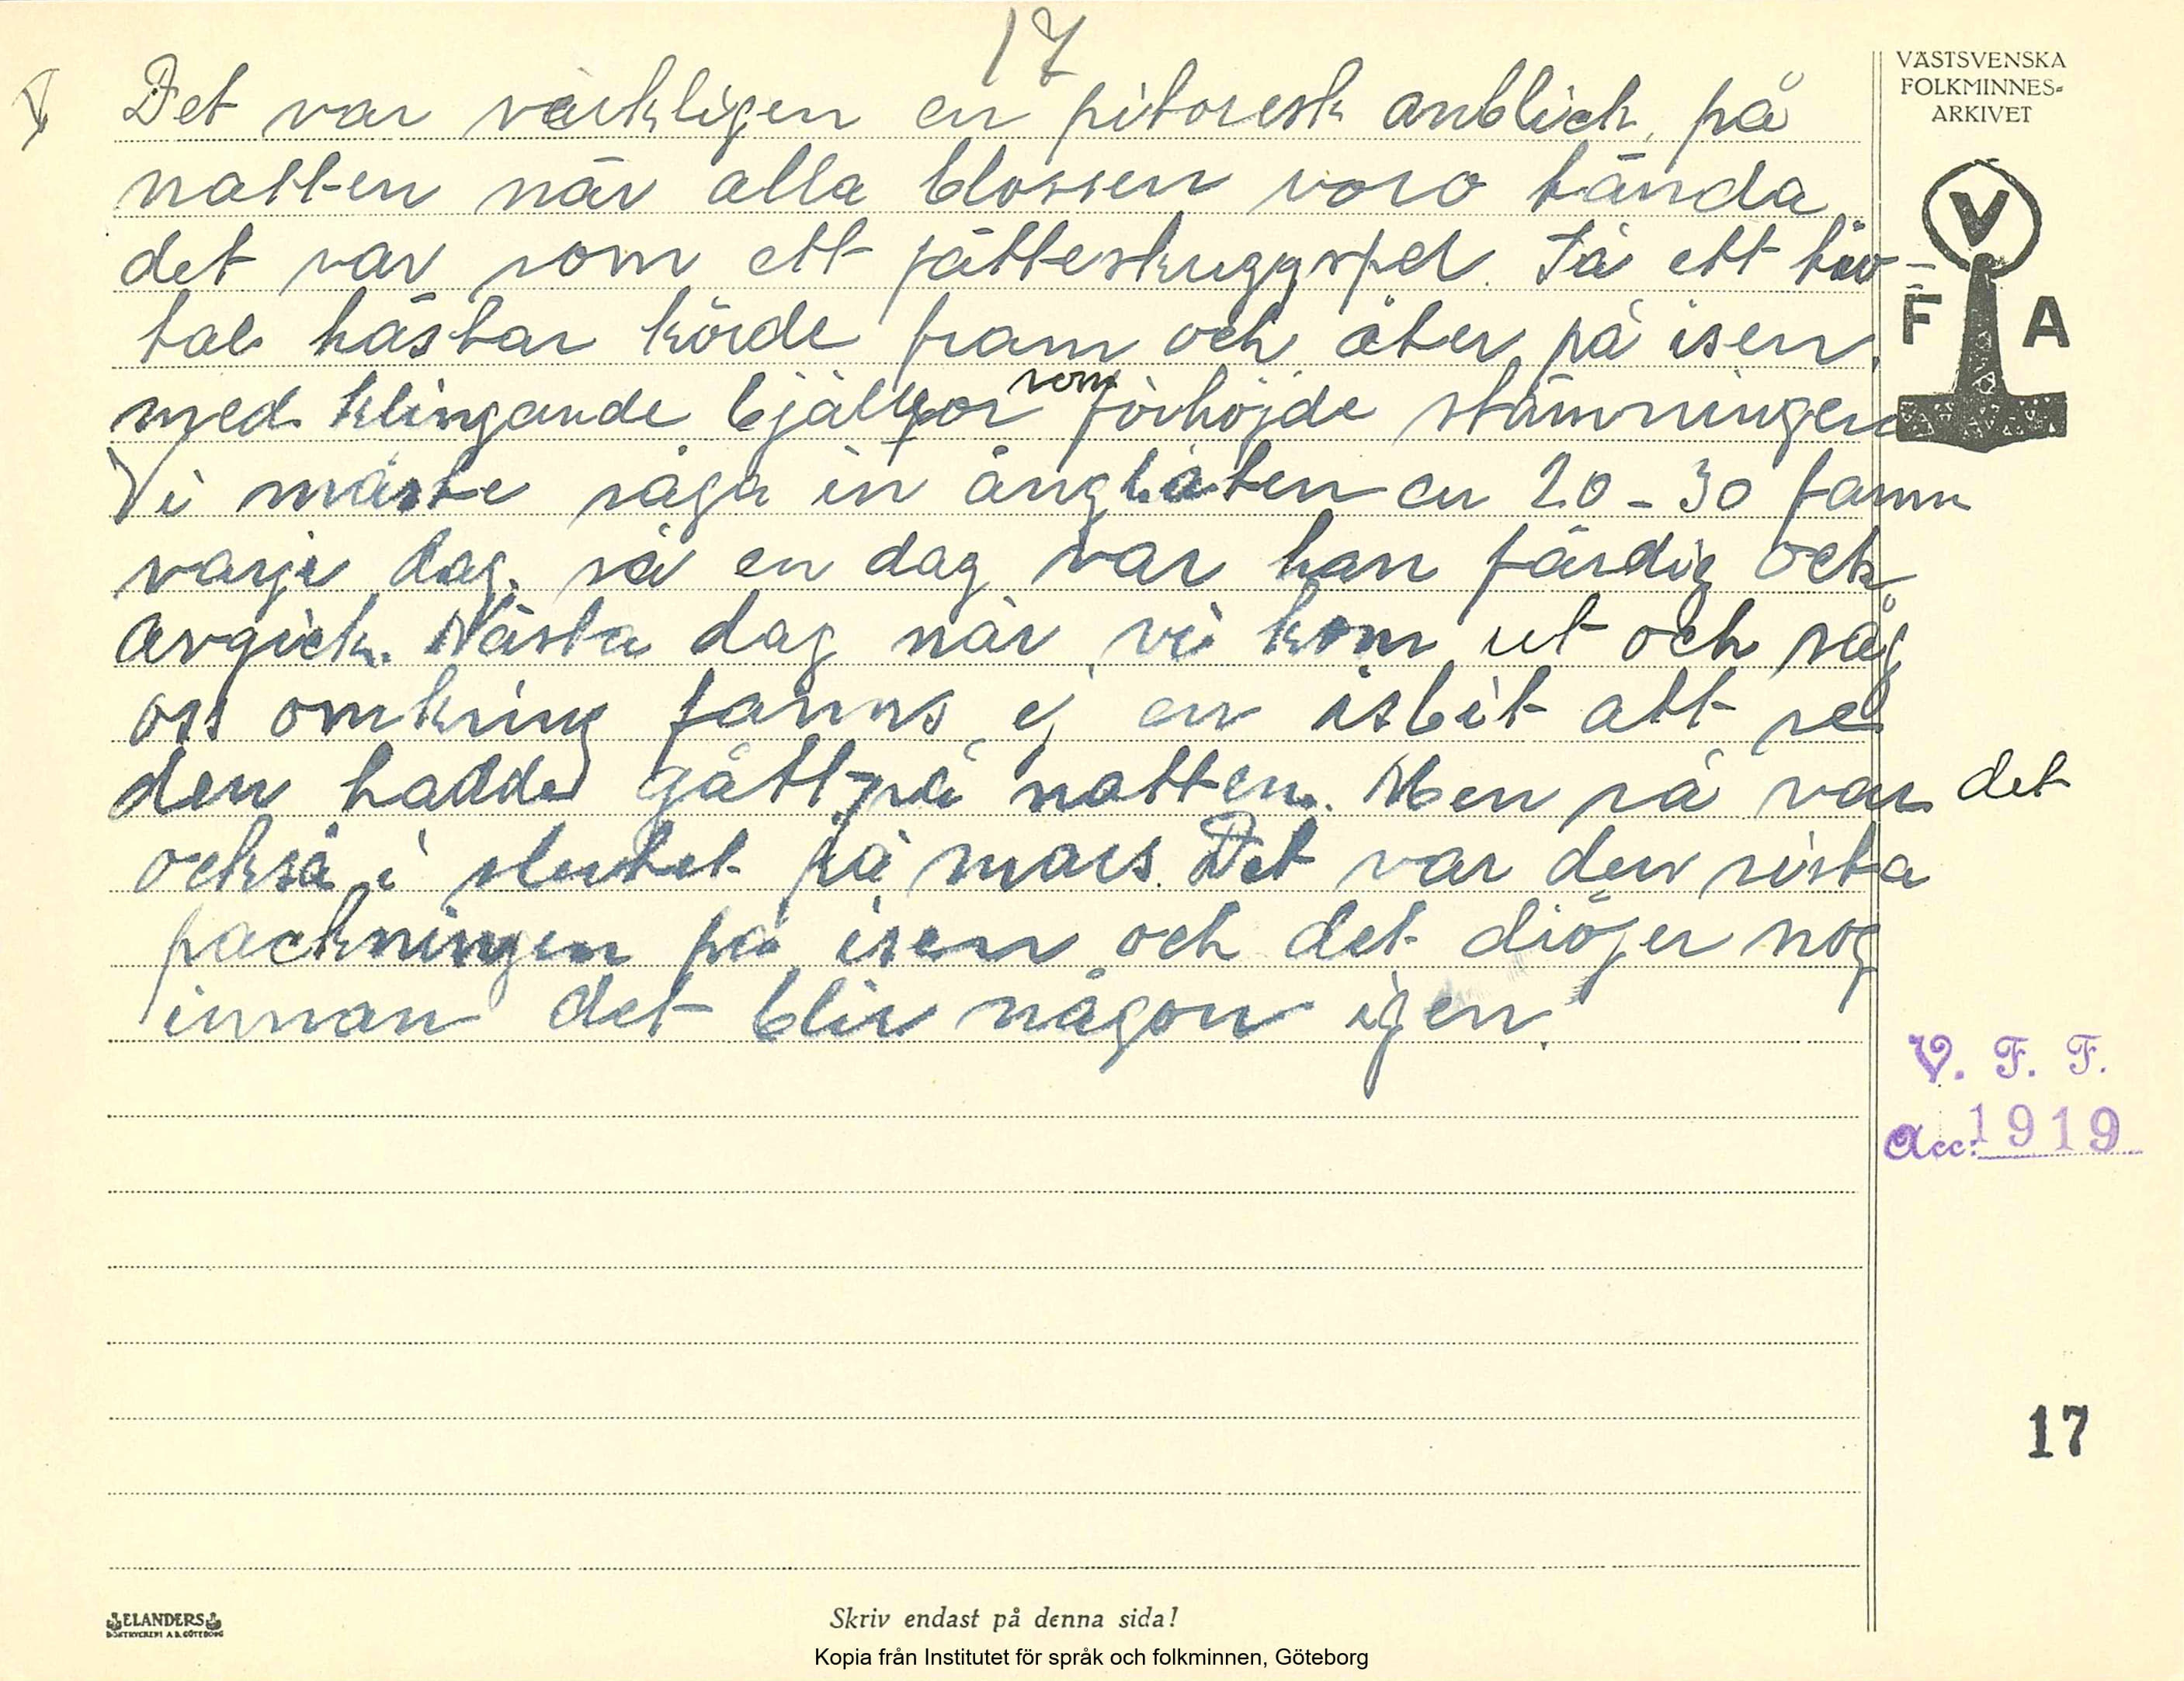 17
VÄSTSVENSKA
FOLKMINNES-
ARKIVET
V
F A
Det var värkligen en pitoresk anblick, på
natten när alla blossen voro tända
det var som ett jätteskuggspel. Tå ett tiv-
tal hästar körde fram och åter på isen.
med klingande bjällror som förhöjde stämningen
Vi måste såga in ångbåten en 20-30 famn
varje dag, så en dag var han färdig och
avgick. Nästa dag när vi kom ut och såg
oss omkring fanns ej en isbit att se
den hadde gått på natten. Men så var det
också i slutet på mars. Det var den sista
packningen på isen och det dröjer nog
innan det blir någon igen.
V. F. F.
Acc. 1919
17
ELANDERS
BOKTRYCKERI A.B. GÖTEBORG
Skriv endast på denna sida!
Kopia från Institutet för språk och folkminnen, Göteborg